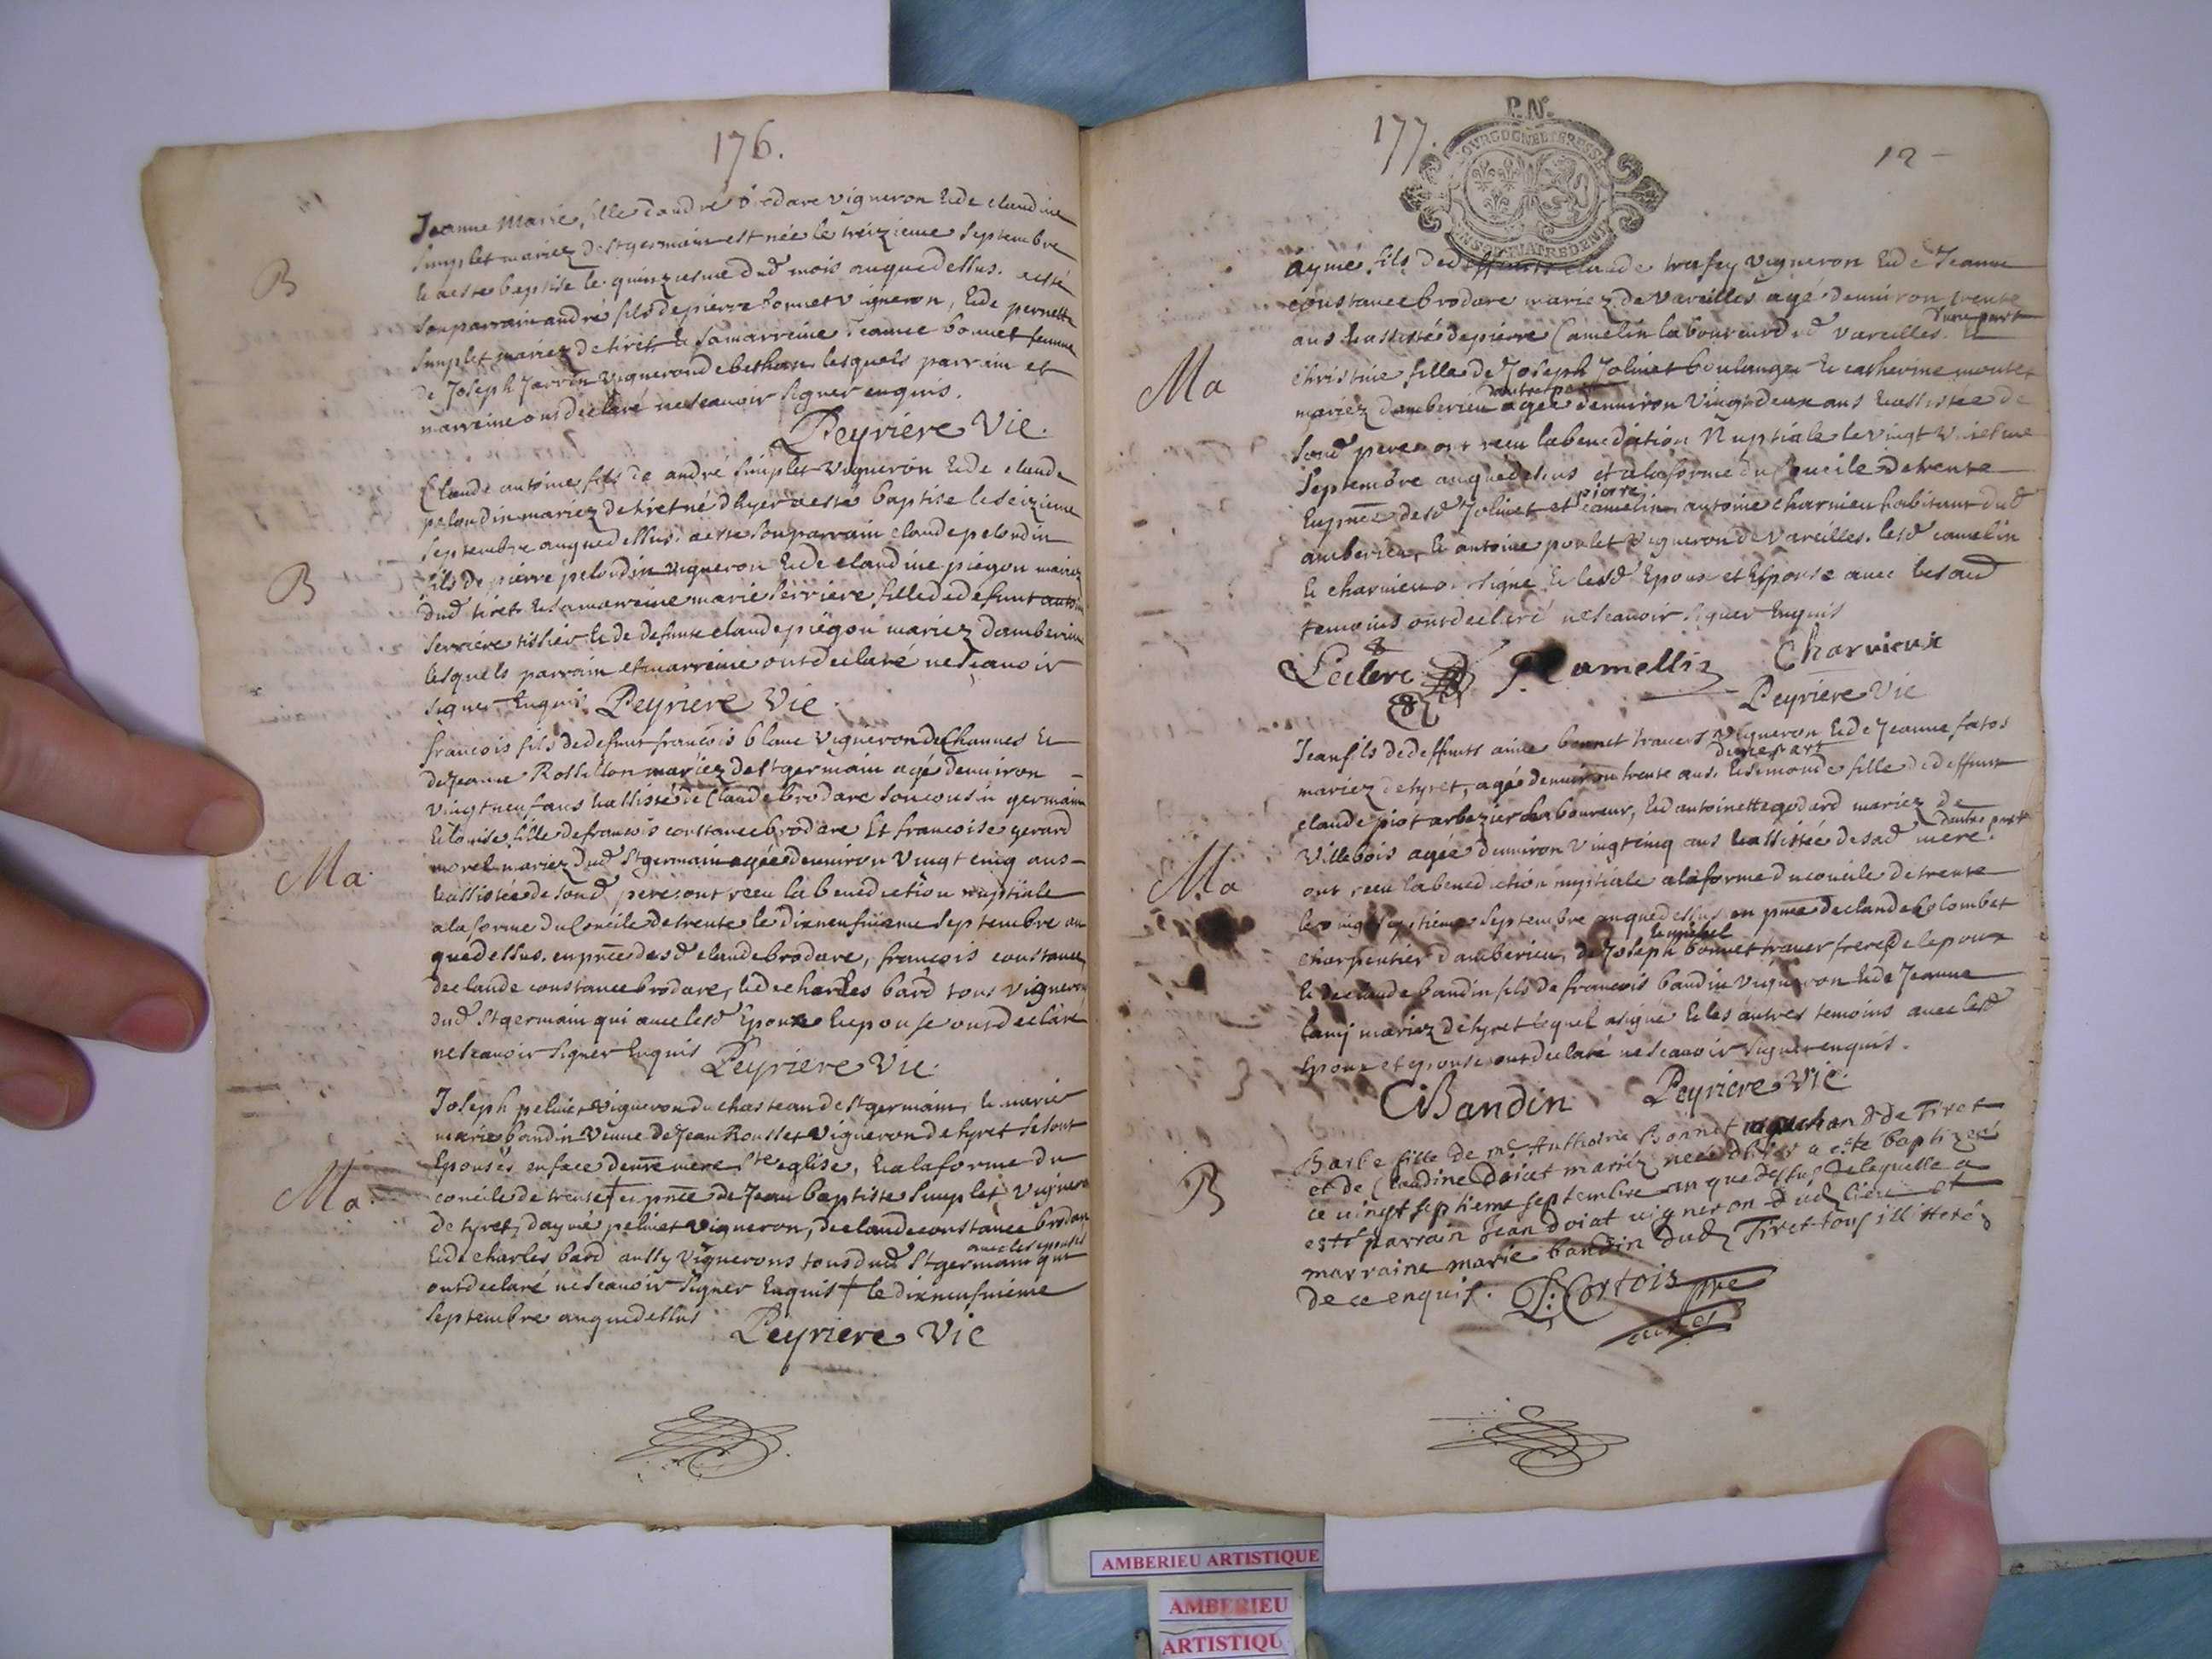 176.
B
Jeanne Marie, fille dandré brodare vigneron & de claudine
simplet mariez de St germain est née le treizieme septembre
& a esté baptisé le quinziesme dud mois an que dellus. a esté
son parrain andré fils de pierre bonnet vigneron, & de pernette
simplet mariez de tiret & sa marreine Jeanne bonnet femme
de Joseph Jarrin vigneron de bethan lesquels parrain et
marreine ont declaré ne scavoir signer enquis.
Peyriere Vic.
B
Claude antoine fils de andré simplet vigneron & de claude
pelondin mariez de tiret né dhyer a esté baptisé le seizieme
septembre an que dellus. a esté son parrain claude pelondin
fils de pierre pelondin vigneron & de claudine piégon mariez
dud tiret & sa marreine marie serriere fille de defunt antoine
serriere tissier & de defunte claude piégon mariez damberieu
lesquels parrain et marreine ont declaré ne scavoir
signer Enquis Peyriere Vic
Ma.
francois fils de defunt francois blanc vigneron de Channes &
de Jeanne Rossillon mariez de St germain agé denviron
vingt neuf ans & assisté de Claude brodare son cousin germain
& louise fille de francois constance brodare & francoise gerard
morel mariez dud St germain agée denviron vingt cinq ans
& assistée de sond pere. ont receu la benediction nuptiale
a la forme du Concile de trente le dixneufvieme septembre an
que dessus. en pnce desd claude brodare, francois constance,
de claude constance brodare, & de charles bard tous vignerons
dud St germain qui avec lesd Epoux & epouse ont declaré
ne scavoir signer Enquis Peyriere Vic.
Ma.
Joseph pelliet vigneron du chasteau de St germain, &
marie baudin veuve de Jean Rousset vigneron de tyret se sont
Epousés en face de nre mere Ste eglise, & a la forme du
concile de trente + en pnce de Jean baptiste simplet vigneron
de tyret, daymé pelliet vigneron, de claude constance brodare
& de charles bard aussy vignerons tous dud St germain qui
avec les epousés
ont declaré ne scavoir signer Enquis + le dixneufvieme
septembre an que dellus
Peyriere Vic
177.
P. Nle
BOURGOGNE ET BRESSE
12
Ma
aymé fils de deffunts claude trafey vigneron & de Jeanne
constance brodare mariez de vareilles agé denviron trente
ans & assisté de pierre Camelin laboureur dud vareilles. &
dune part
christine fille de Joseph Jolinet boulanger & catherine montet
mariez damberieu agée denviron vingt deux ans & assistée de
dautre part
sond pere ont receu la benediction Nuptiale le vingt
septembre an que dessus et a la forme du Concile de trente
En pnce desd Jolinet et camelin, antoine charvieu habitant dud
pierre
amberieu, & antoine poulet vigneron de vareilles. lesd camelin
& charvieu ont signé & lesd Epoux et Epouse avec les aud
temoins ont declaré ne scavoir signer Enquis
Leclerc P. Camellin Charvieux
Peyriere Vic
Ma
Jean fils de deffunts aimé bonnet traver vigneron & de Jeanne fatos
dune part
mariez de tyret, agé denviron trente ans. & simonde fille de deffunt
claude piot arbezier laboureur, & d antoinette godard mariez de
Villebois agée denviron vingt cinq ans & assistée de sad mere.
dautre part
ont receu la benediction nuptiale a la forme du concile de trente
le vingt septieme septembre an que dessus en pnce de claude Colombet
charpentier damberieu, de Joseph bonnet traver frere de lepoux
& michel
& de claude baudin fils de francois baudin vigneron & de Jeanne
lamy mariez de tyret lequel a signé & les autres temoins avec lesd
Epoux et epouse ont declaré ne scavoir signer enquis.
CBaudin Peyriere Vic.
B
Barbe fille de me Anthoine Bonnet marchand de Tiret
et de Claudine Doiat mariéz née dhier a esté baptizeé
ce vingt septieme septembre an que dessus de laquelle a
esté parrain Jean doiat vigneron dud lieu et
marraine marie baudin dud Tiret tous illiteréz
de ce enquis. P. Cortois pre